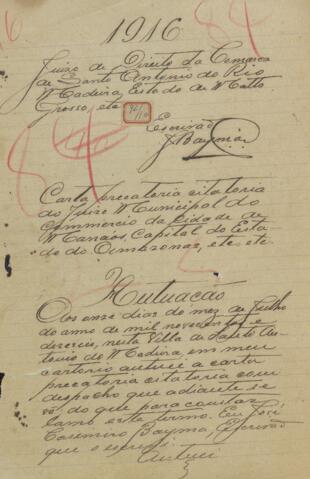 1916
84
Juizo de Direito da Comarca
de Santo Antonio do Rio
Madeira, Estado de Matto
Grosso, etc
Escrivão
J. Bayma
84
Carta precatoria citatoria
do Juizo Municipal do
Commercio da cidade de
Manáos, Capital do Esta
do do Amazonas, etc. etc.
Autuação
Aos onze dias do mez de Julho
do anno de mil novecentos e
dezeseis, nesta Villa de Santo An-
tonio do Madeira, em meu
cartorio autuei a carta
precatoria citatoria com
despacho que adiante se
vê, do que para constar
lavro este termo. Eu José
Casemiro Bayma, Escrivão
que o escrevi.
Autuei